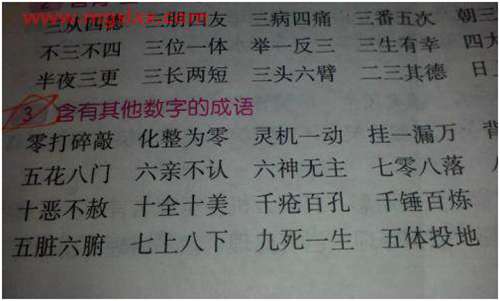 三从四德 三朋四友 三病四痛 三番五次 朝三
不三不四 三位一体 举一反三 三生有幸 四大
半夜三更 三长两短 三头六臂 二三其德 日
3 含有其他数字的成语
零打碎敲 化整为零 灵机一动 挂一漏万 背
五花八门 六亲不认 六神无主 七零八落
十恶不赦 十全十美 千疮百孔 千锤百炼
五脏六腑 七上八下 九死一生 五体投地